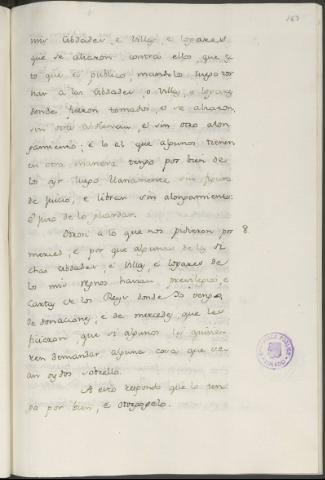 163
mis Cibdades, e Villas, e logares
que se alzaron contra ellos, que es
to que es publico, mandolo luego tor
nar a las Cibdades, o Villas, o logares
donde fueron tomados, e se alzaron,
sin otra audiencia, e sin otro alon
gamiento; e lo al que algunos tienen
en otra manera tengo por bien de
los oyr luego llanamente sin figura
de juicio, e librar sin alongamiento:
e juro de lo guardar.
Otrosi a lo que nos pidieron por 8
merced, e por que algunas de las di
chas Cibdades, e Villas, e logares de
los mis regnos havian previlegios, e
Cartas de los Reyes donde Yo vengo,
de donaciones, e de mercedes, que les
ficieron que si algunos les quisie
ren demandar alguna cosa que se
an oydos sobrello.
A esto respondo que lo ten
go por bien, e otorgogelo.